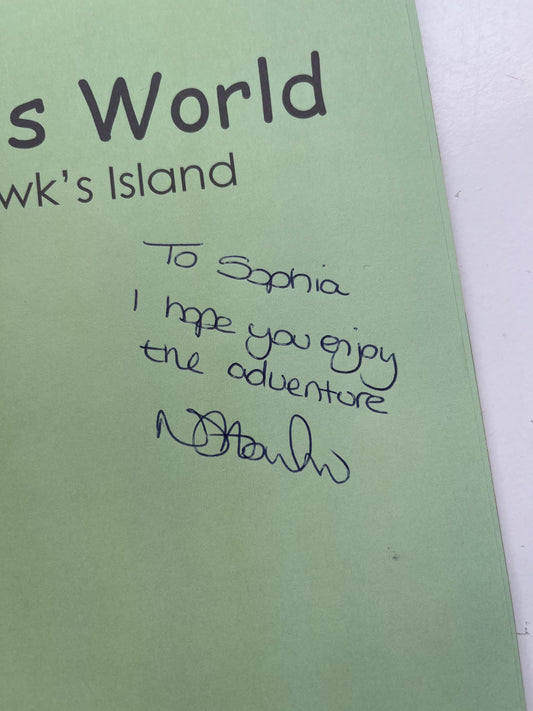 s World
wk's Island
To Sophia
I hope you enjoy
the adventure